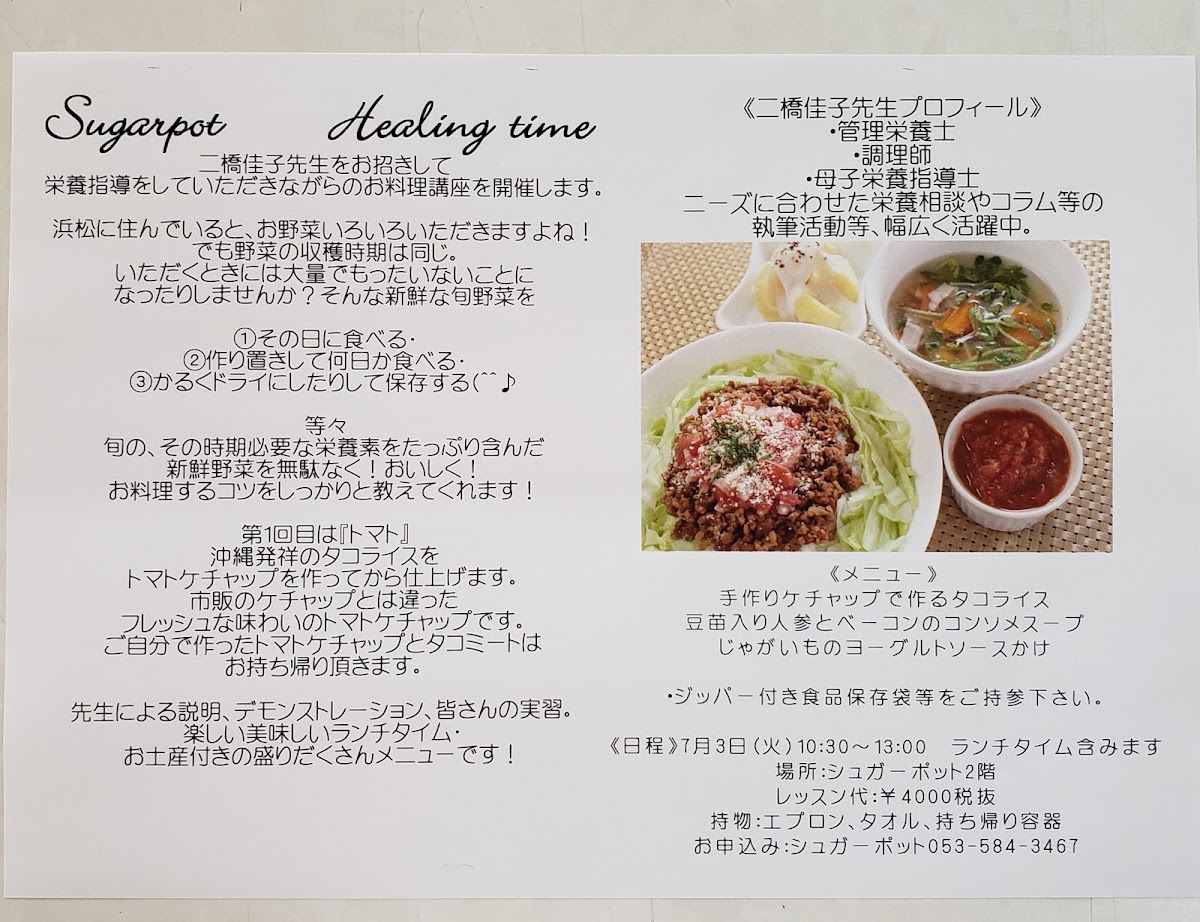 Sugarpot Healing time
二橋佳子先生をお招きして
栄養指導をしていただきながらのお料理講座を開催します。
浜松に住んでいると、お野菜いろいろいただきますよね！
でも野菜の収穫時期は同じ。
いただくときには大量でもったいないことに
なったりしませんか？そんな新鮮な旬野菜を
①その日に食べる・
②作り置きして何日か食べる・
③かるくドライにしたりして保存する(^^♪
等々
旬の、その時期必要な栄養素をたっぷり含んだ
新鮮野菜を無駄なく！おいしく！
お料理するコツをしっかりと教えてくれます！
第1回目は『トマト』
沖縄発祥のタコライスを
トマトケチャップを作ってから仕上げます。
市販のケチャップとは違った
フレッシュな味わいのトマトケチャップです。
ご自分で作ったトマトケチャップとタコミートは
お持ち帰り頂きます。
先生による説明、デモンストレーション、皆さんの実習。
楽しい美味しいランチタイム・
お土産付きの盛りだくさんメニューです！
《二橋佳子先生プロフィール》
・管理栄養士
・調理師
・母子栄養指導士
ニーズに合わせた栄養相談やコラム等の
執筆活動等、幅広く活躍中。
《メニュー》
手作りケチャップで作るタコライス
豆苗入り人参とベーコンのコンソメスープ
じゃがいものヨーグルトソースかけ
・ジッパー付き食品保存袋等をご持参下さい。
《日程》7月3日(火)10:30～13:00　ランチタイム含みます
場所:シュガーポット2階
レッスン代:￥4000税抜
持物:エプロン、タオル、持ち帰り容器
お申込み:シュガーポット053-584-3467